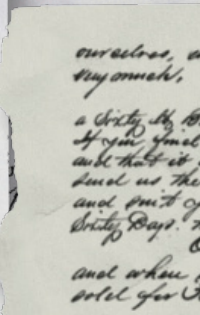 ourselves,
very much,
a Sixty lb
If you find
and that it
send us the
and suit y
Sixty Days.
and when
sold for